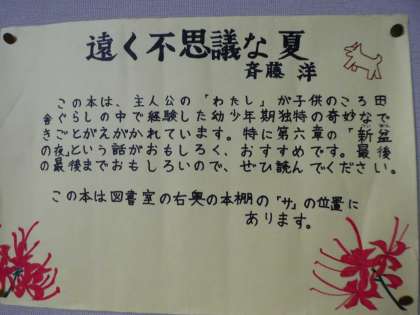 遠く不思議な夏
斉藤 洋
この本は、主人公の「わたし」が子供のころ田
舎ぐらしの中で経験した幼少年期独特の奇妙なで
きごとがえがかれています。特に第六章の「新盆
の夜」という話がおもしろく、おすすめです。最後
の最後までおもしろいので、ぜひ読んでください。
この本は図書室の右奥の本棚の「サ」の位置に
あります。